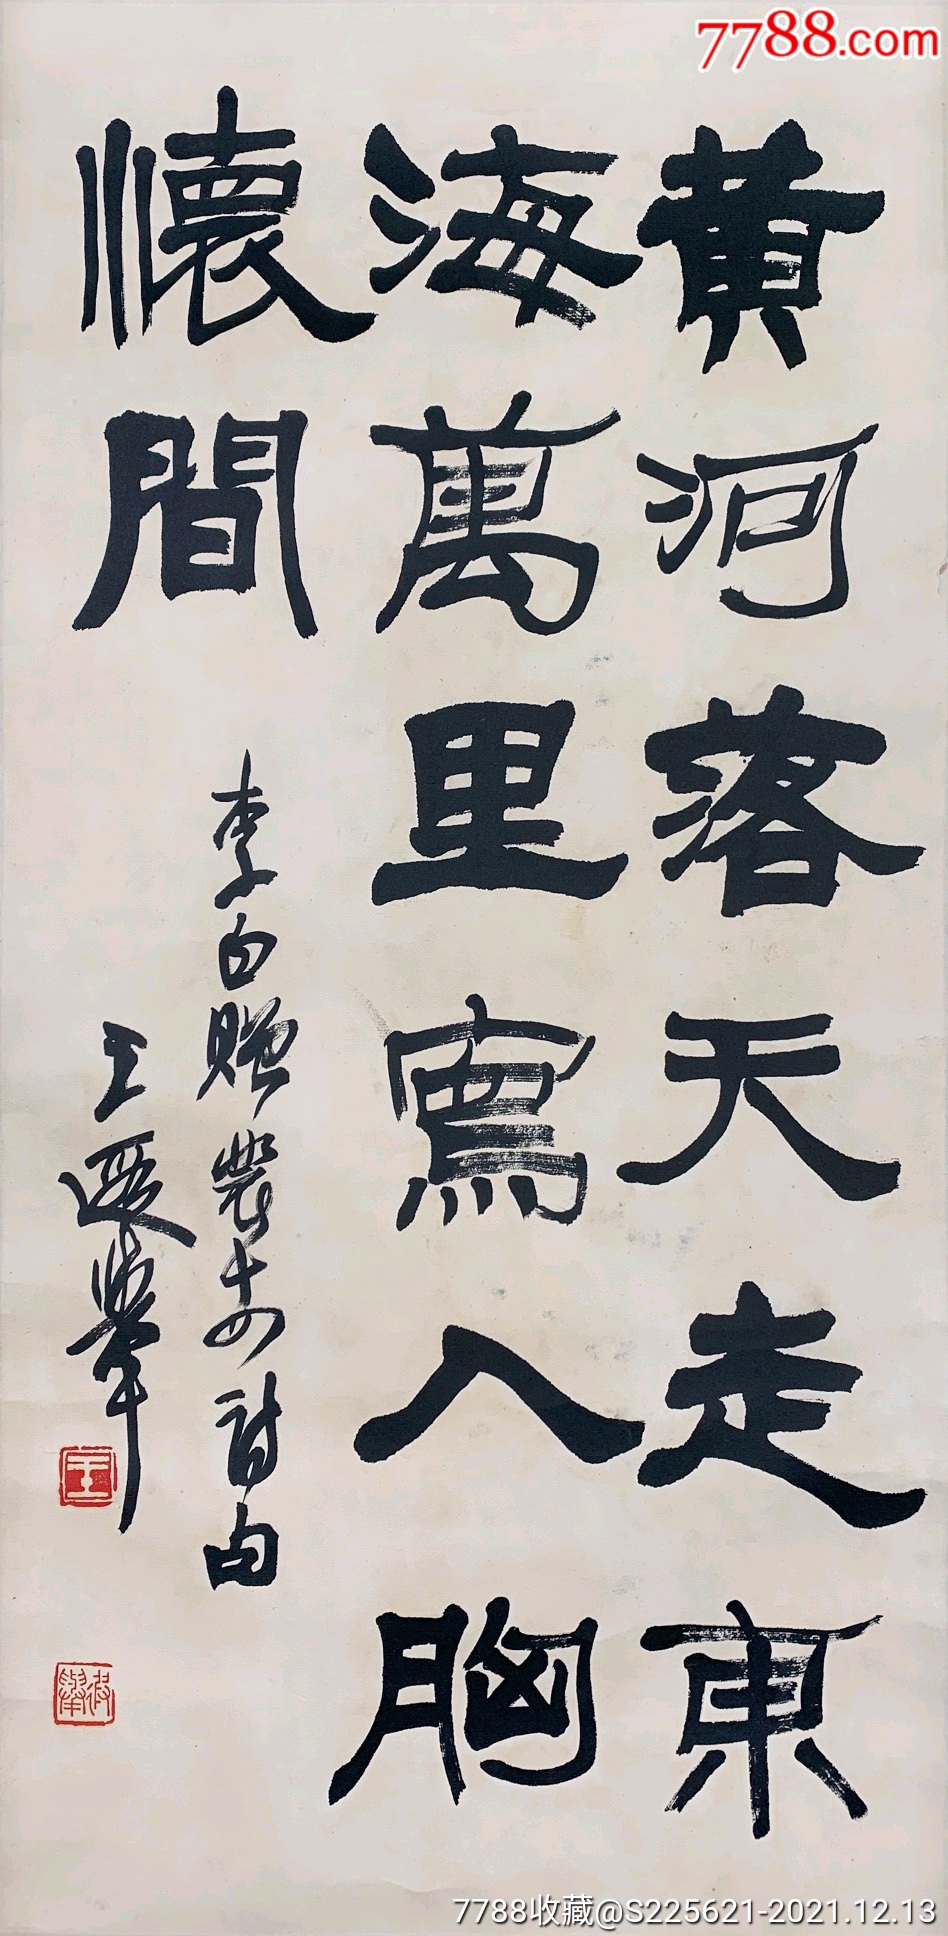 7788.com
黄河落天走東
海萬里寫入胸
懷間
李白贈裴十四詩句
王遐舉
王
7788收藏@S225621-2021.12.13